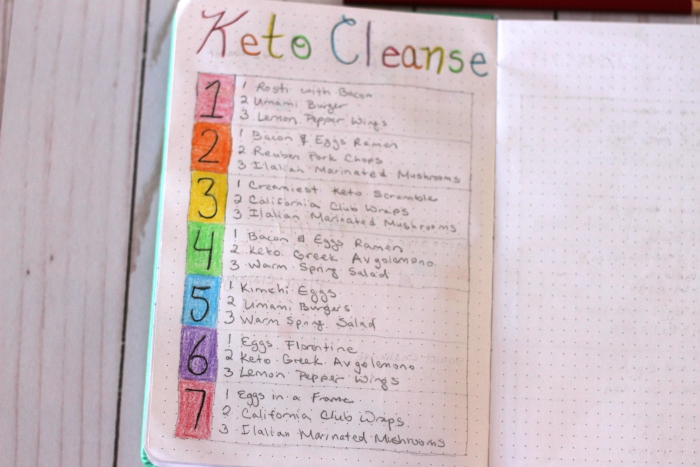 Keto Cleanse
1
1 Rosti with Bacon
2 Umami Burger
3 Lemon Pepper Wings
2
1 Bacon & Eggs Ramen
2 Reuben Pork Chops
3 Ilalian Marinated Mushrooms
3
1 Creamiest Keto Scramble
2 California Club Wraps
3 Ilalian Marinated Mushrooms
4
1 Bacon & Eggs Ramen
2 Keto Greek Avgolemono
3 Warm Spring Salad
5
1 Kimchi Eggs
2 Umami Burgers
3 Warm Spring Salad
6
1 Eggs Florentine
2 Keto Greek Avgolemono
3 Lemon Pepper Wings
7
1 Eggs in a Frame
2 California Club Wraps
3 Ilalian Marinated Mushrooms